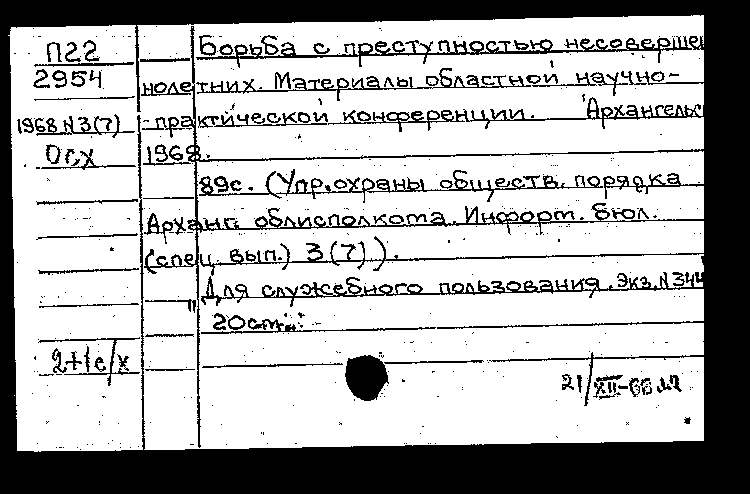 П22 Борьба с преступностью несоверше
2954 нолетних. Материалы областной научно-
1968 N3(7) -практической конференции. Архангельс
Осх 1968.
89с. (Упр. охраны обществ. порядка
Арханг. облисполкома. Информ. бюл.
(спец. вып.) 3(7)).
"Для служебного пользования. Экз. N344
20см.
2+1е/х
21/XII-